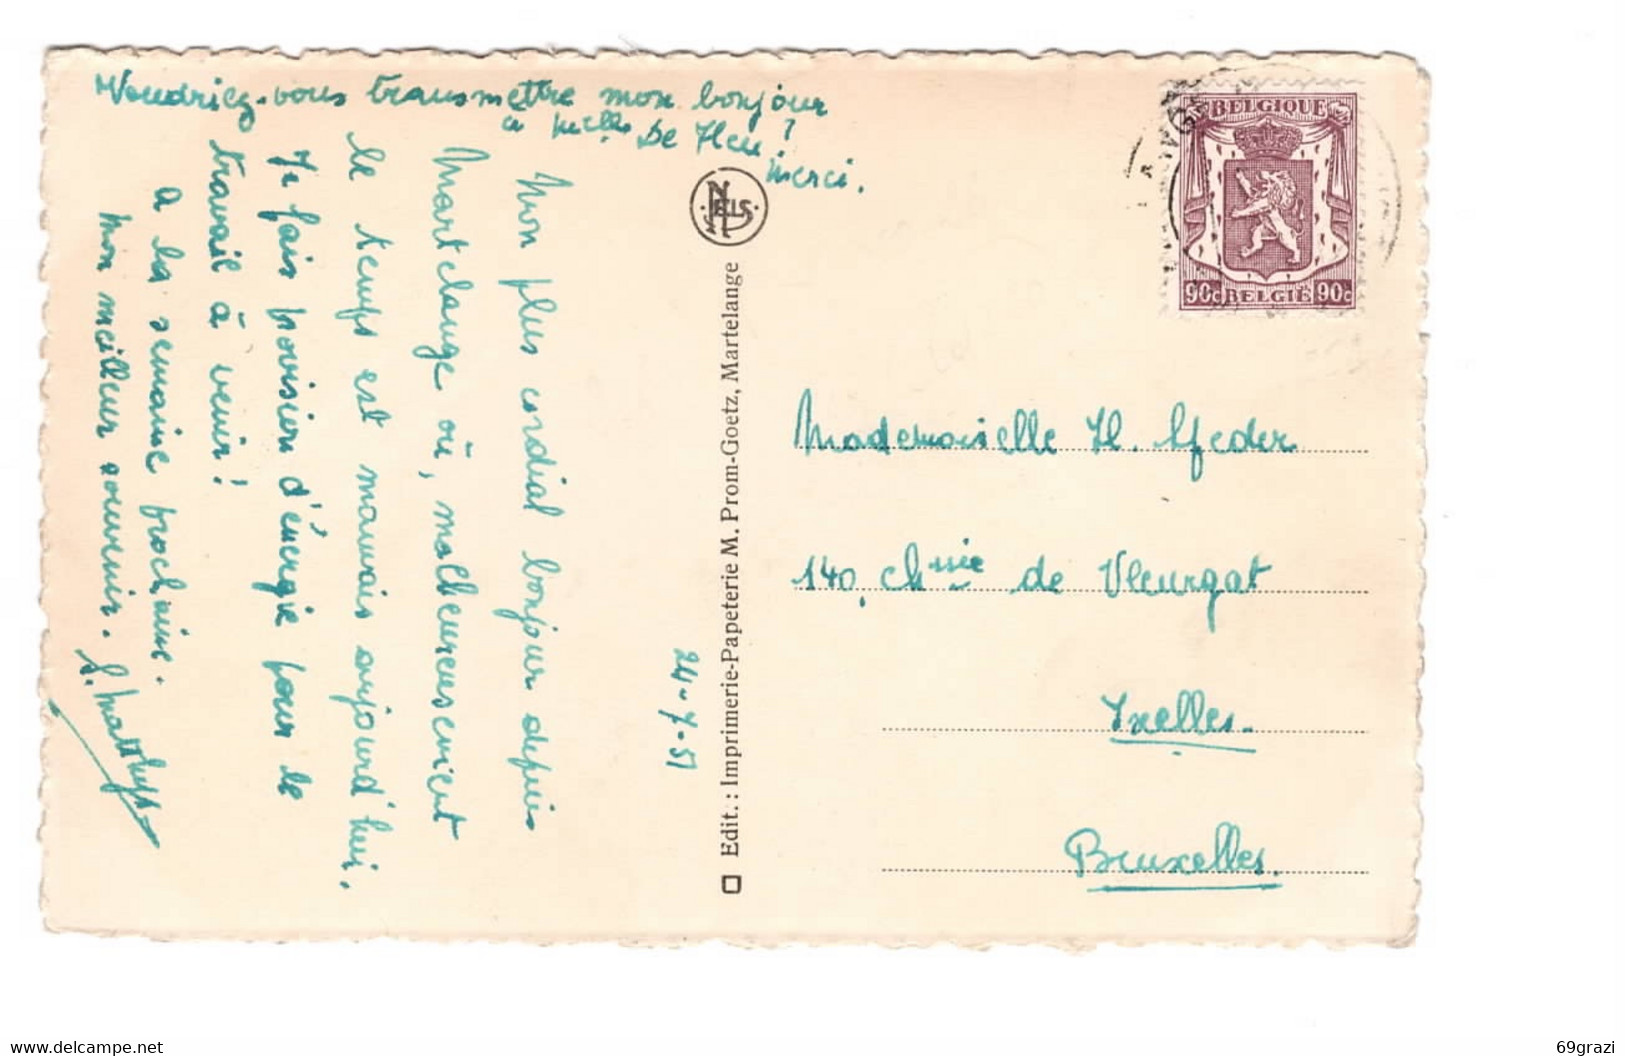 Voudriez-vous transmettre mon bonjour
à Melle De Heu ?
Merci.
24-7-51
Mon plus cordial bonjour depuis
Martelange où, malheureusement
le temps est mauvais aujourd'hui.
Je fais provision d'énergie pour le
travail à venir !
A la semaine prochaine.
Mon meilleur souvenir.
S. Matthys
NELS
Edit. : Imprimerie-Papeterie M. Prom-Goetz, Martelange
BELGIQUE
90c BELGIË 90c
Mademoiselle H.
140, Chssée de Vleurgat
Ixelles.
Bruxelles.
delcampe.net
69grazi